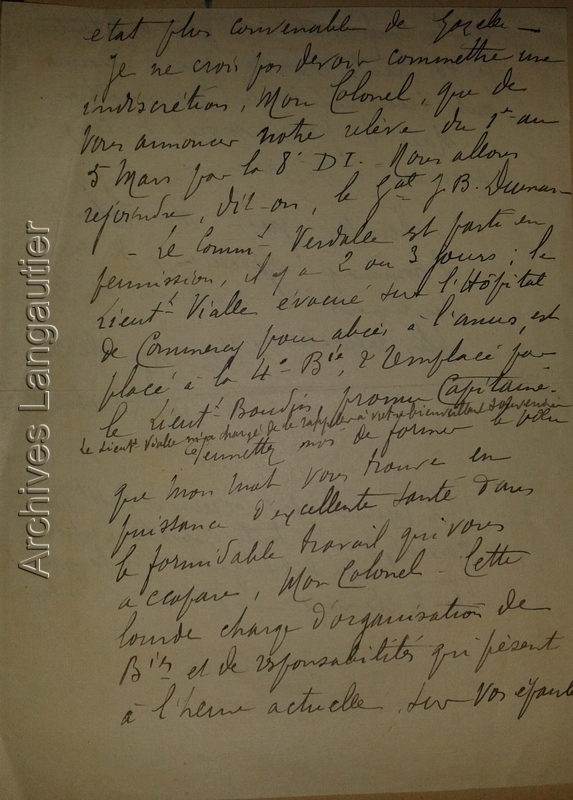 etat plus convenable de Gazelle –
Je ne crois pas devoir commettre une
indiscrétion, Mon Colonel, que de
vous annoncer notre relève du 1er au
5 Mars par la 8e DI. Nous allons
rejoindre, dit-on, le Gal J B. Dumas –
– Le Commt Verdalle est parti en
permission, il y a 2 ou 3 jours ; le
Lieutt Vialle évacué sur l'Hôpital
de Commercy pour abcès à l'anus, est
placé à la 4e Bie, & remplacé par
le Lieutt promu Capitaine.
Le Lieutt Vialle m'a chargé de le rappeler à votre bienveillant souvenir
Permettez moi de former le vœu
que mon mot vous trouve en
puissance d'excellente santé dans
le formidable travail qui vous
accapare, Mon Colonel – Cette
lourde charge d'organisation de
Bies et de responsabilités qui pèsent
à l'heure actuelle, sur vos épaules
Archives Langautier